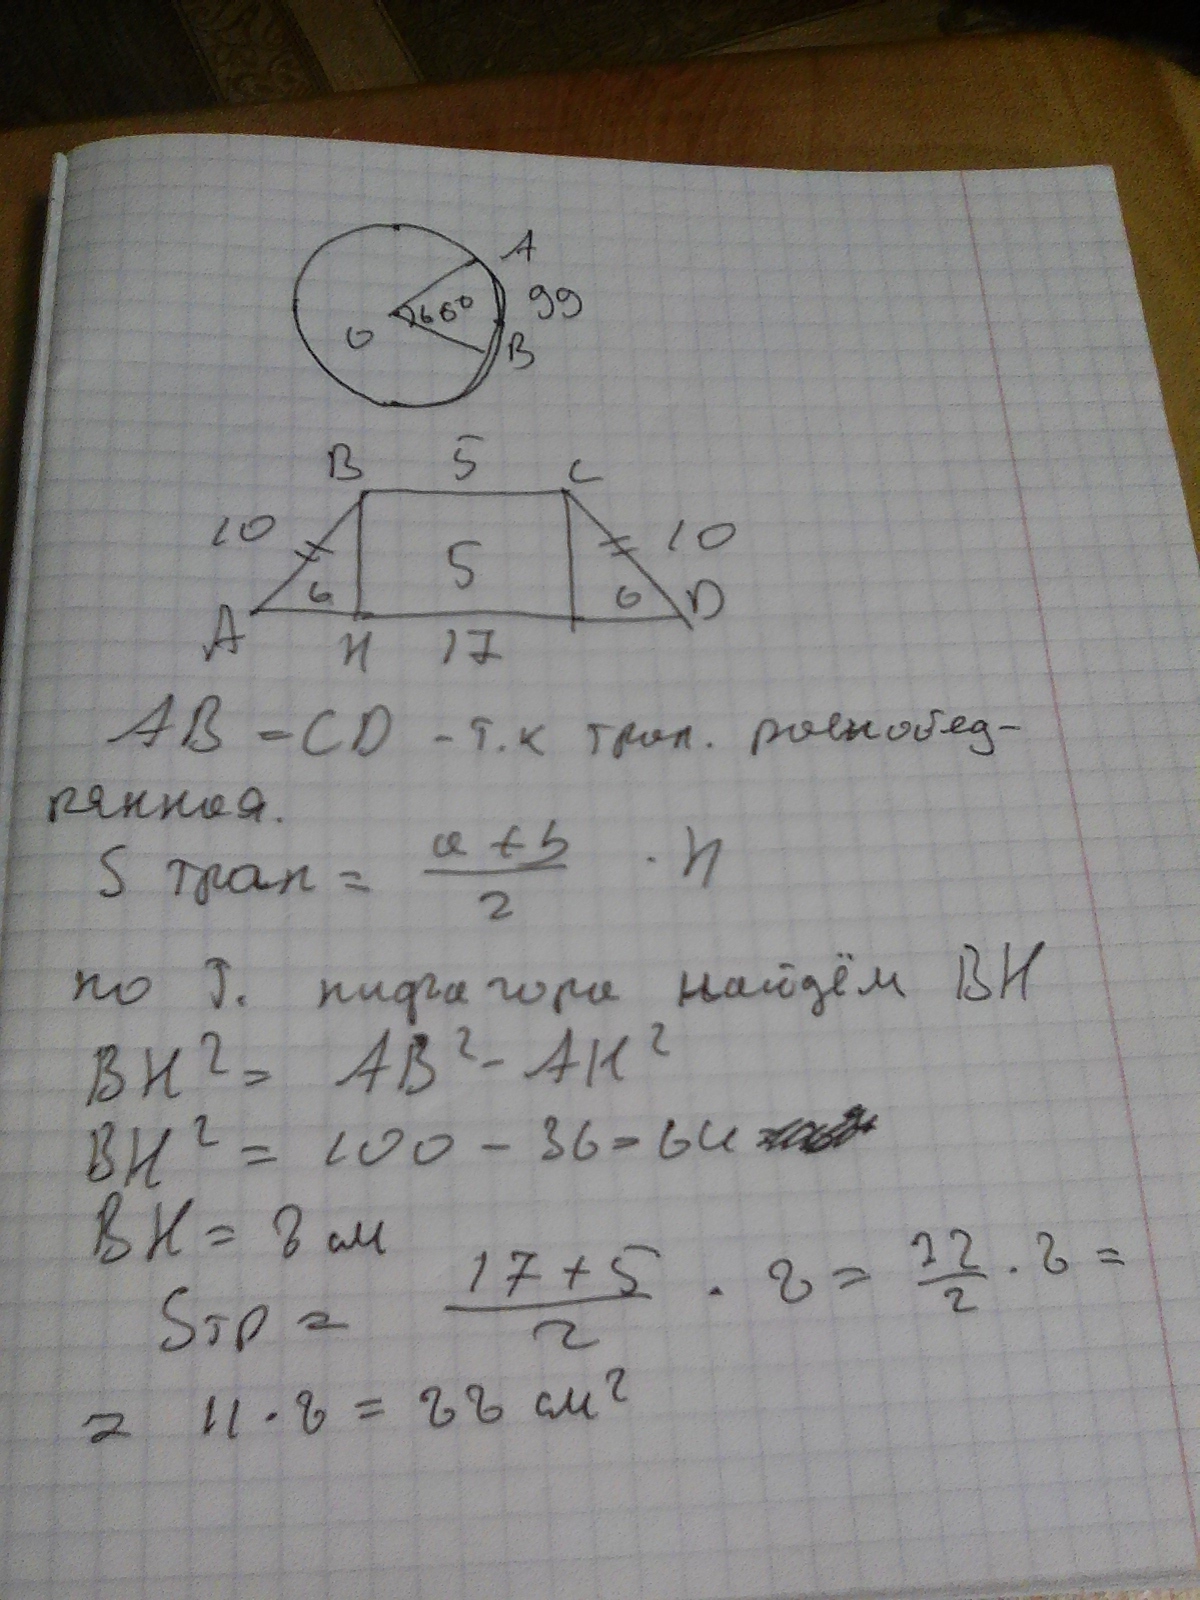 A
99
O
B
B 5 C
10
5
10
6
6
A
H 17
D
AB = CD - т.к трап. равнобед-
рянная.
S трап = a + b / 2 · H
по Т. пифагора найдём BH
BH² = AB² - AH²
BH² = 100 - 36 = 64
BH = 8 см
Sтр = 17 + 5 / 2 · 8 = 22 / 2 · 8 =
= 11 · 8 = 88 см²